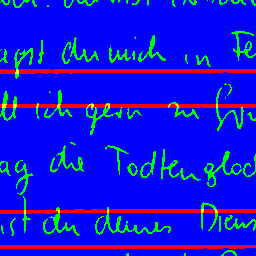 agst du mich in Fe
ll ich gern zu Gru
ag die Todtengloc
ist du deines Diens